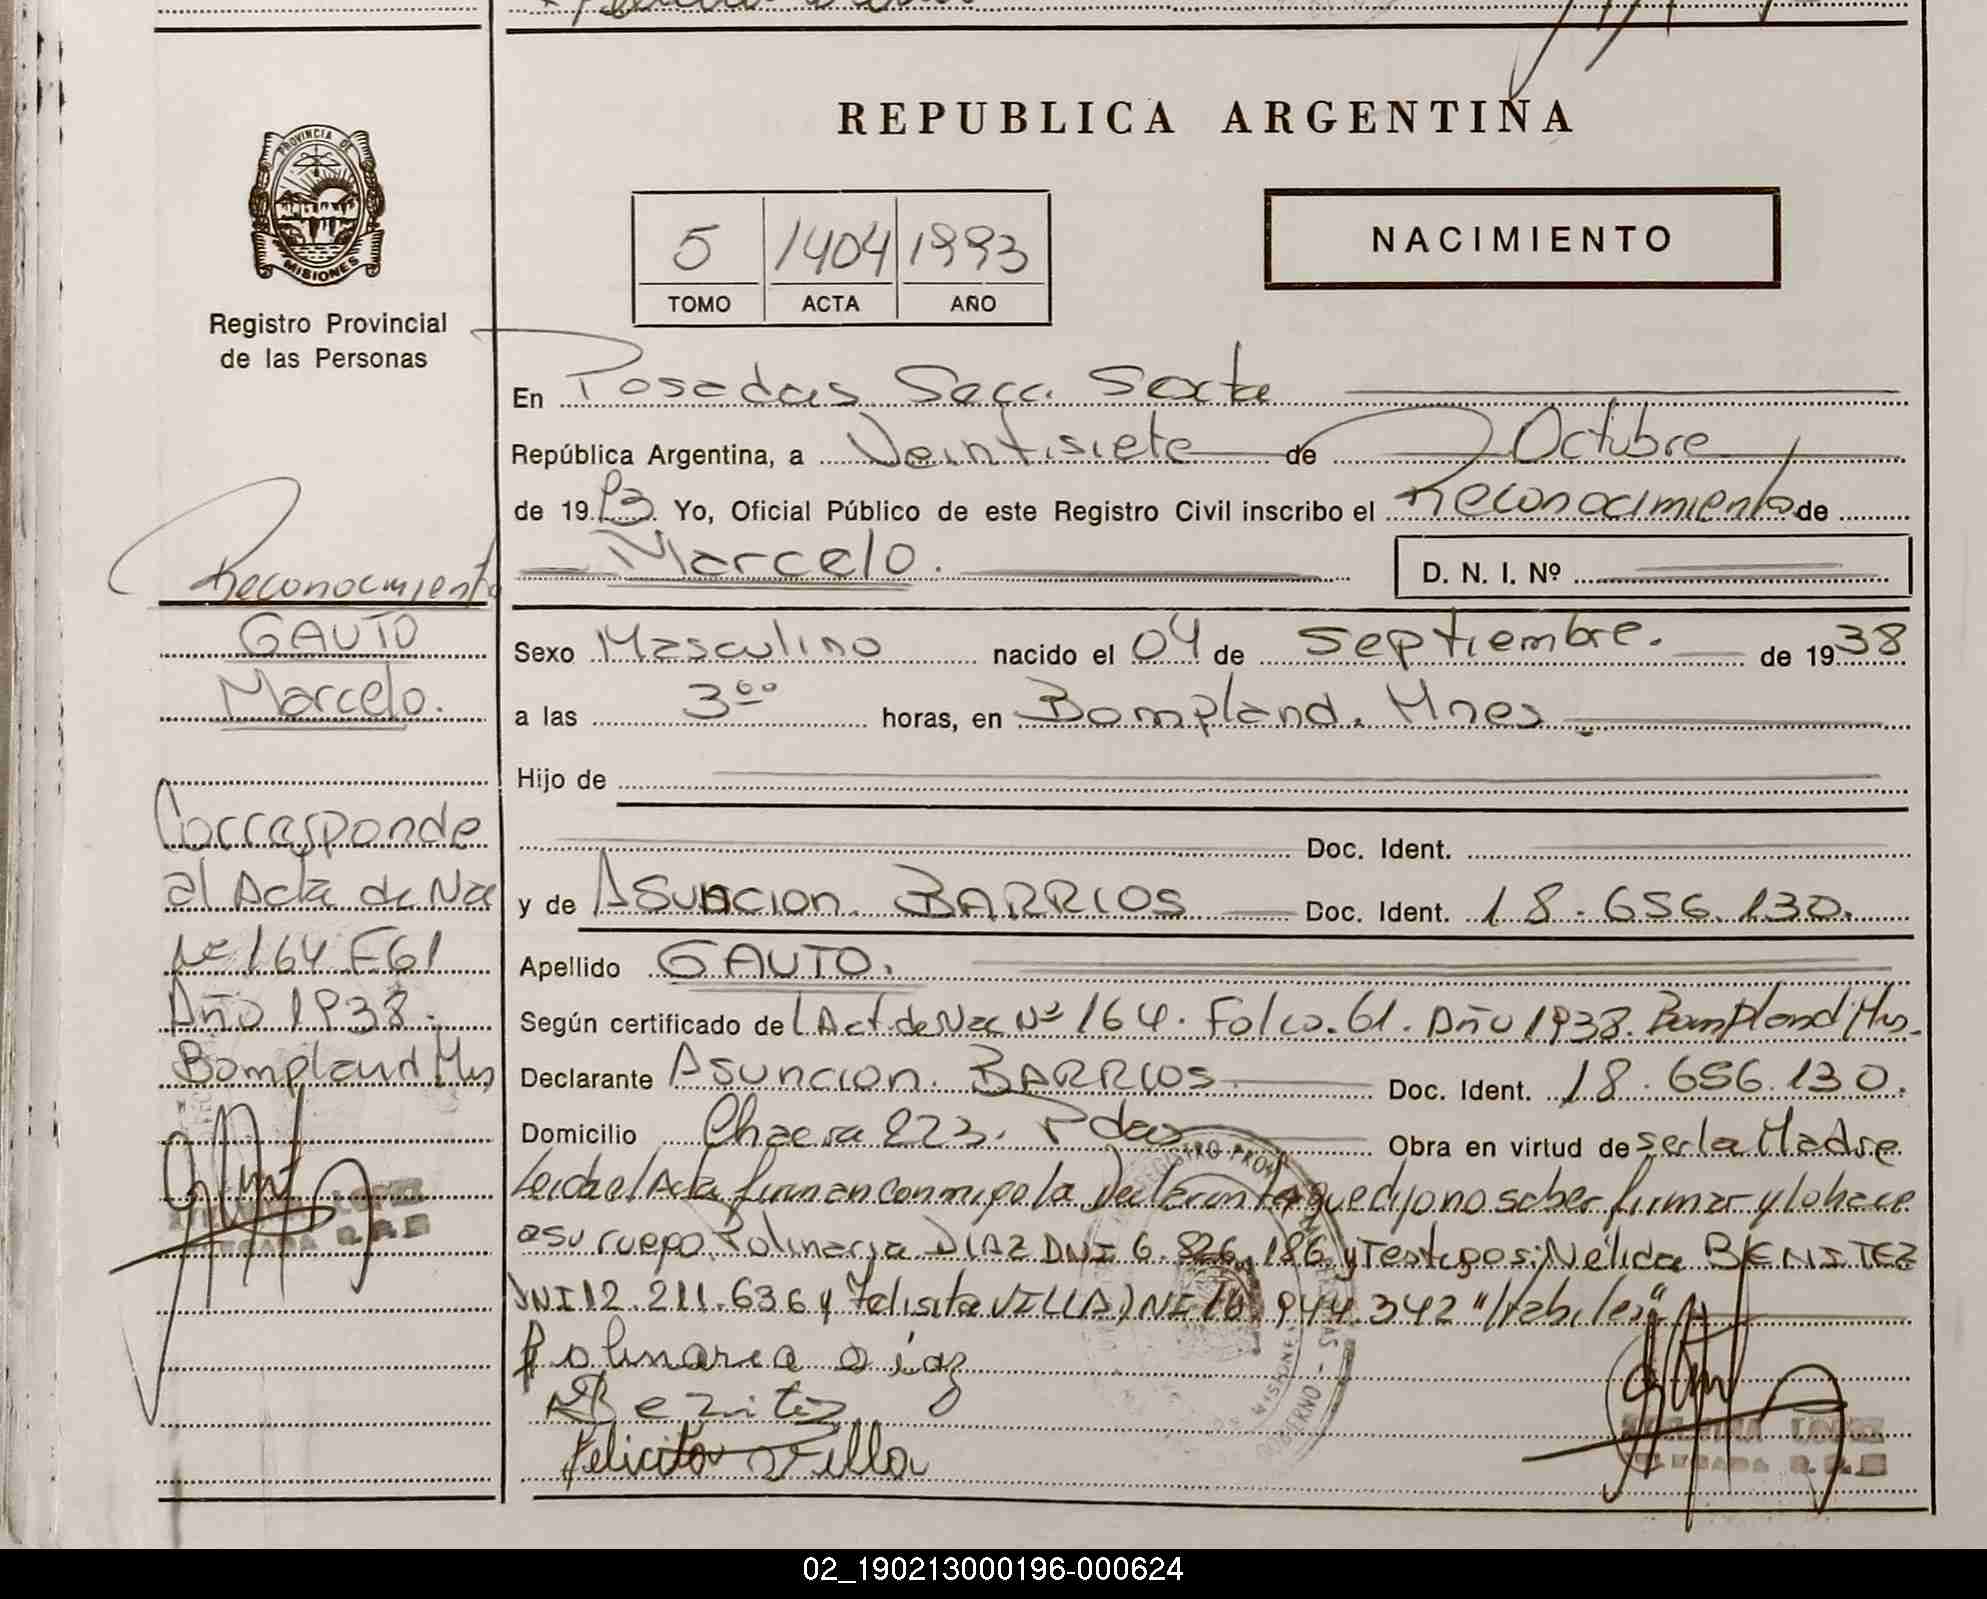 REPUBLICA ARGENTINA
PROVINCIA DE
MISIONES
Registro Provincial
de las Personas
5 1404 1993
TOMO ACTA AÑO
NACIMIENTO
En Posadas Secc. Sexta
República Argentina, a Veintisiete de Octubre
de 1993 Yo, Oficial Público de este Registro Civil inscribo el Reconocimiento de
Marcelo.
D. N. I. Nº
Reconocimiento
GAUTO
Marcelo.
Corresponde
al Acta de Nac
Nº 164 F61
Año 1938.
Bompland Mns
Sexo Masculino nacido el 04 de Septiembre. de 1938
a las 3⁰⁰ horas, en Bompland. Mnes
Hijo de
Doc. Ident.
y de Asuncion BARRIOS Doc. Ident. 18.656.130.
Apellido GAUTO.
Según certificado de Act. de Nac Nº 164. Folio. 61. Año 1938. Bompland Mns.
Declarante Asuncion. BARRIOS Doc. Ident. 18.656.130.
Domicilio Chacra 223. Pdas Obra en virtud de ser la Madre
Leida el Acta firman conmigo la Declarante que dijo no saber firmar y lo hace
a su ruego Polinaria DIAZ DNI 6.826.186 y Testigos: Nélida BENITEZ
DNI 12.211.636 y Felisita VILLA DNI 944.342 "Habiles"
Polinaria Diaz
Benitez
Felicita Villa
02_190213000196-000624